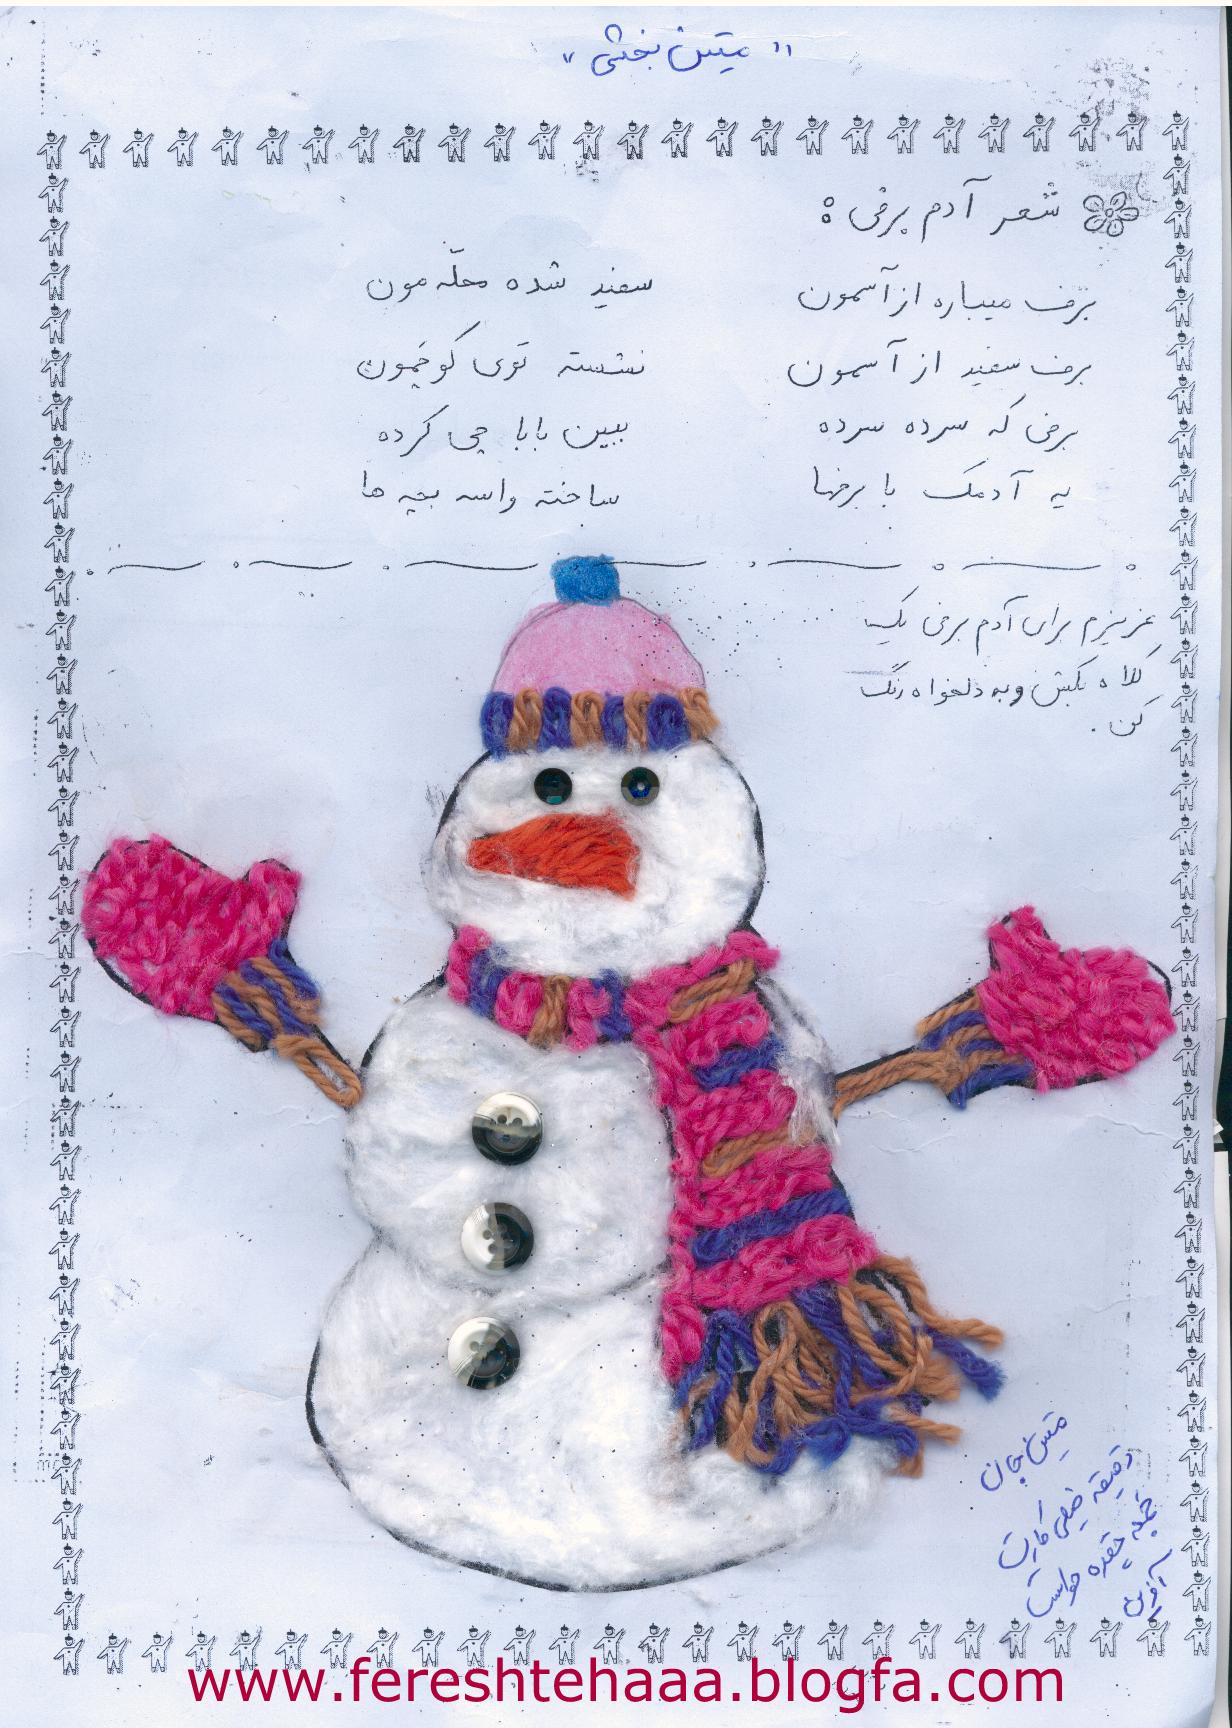 " متین بخشی "
شعر آدم برفی :
برف میباره از آسمون سفید شده محلّه مون
برف سفید از آسمون نشسته توی کوچمون
برفی که سرده سرده ببین بابا چی کرده
یه آدمک با برفها ساخته واسه بچه ها
عزیزم برای آدم برفی یک
کلاه بکش و به دلخواه رنگ
کن .
متین جان
دقیقه خیلی کارت
جمعه چقدره حواست
آفرین
www.fereshtehaaa.blogfa.com